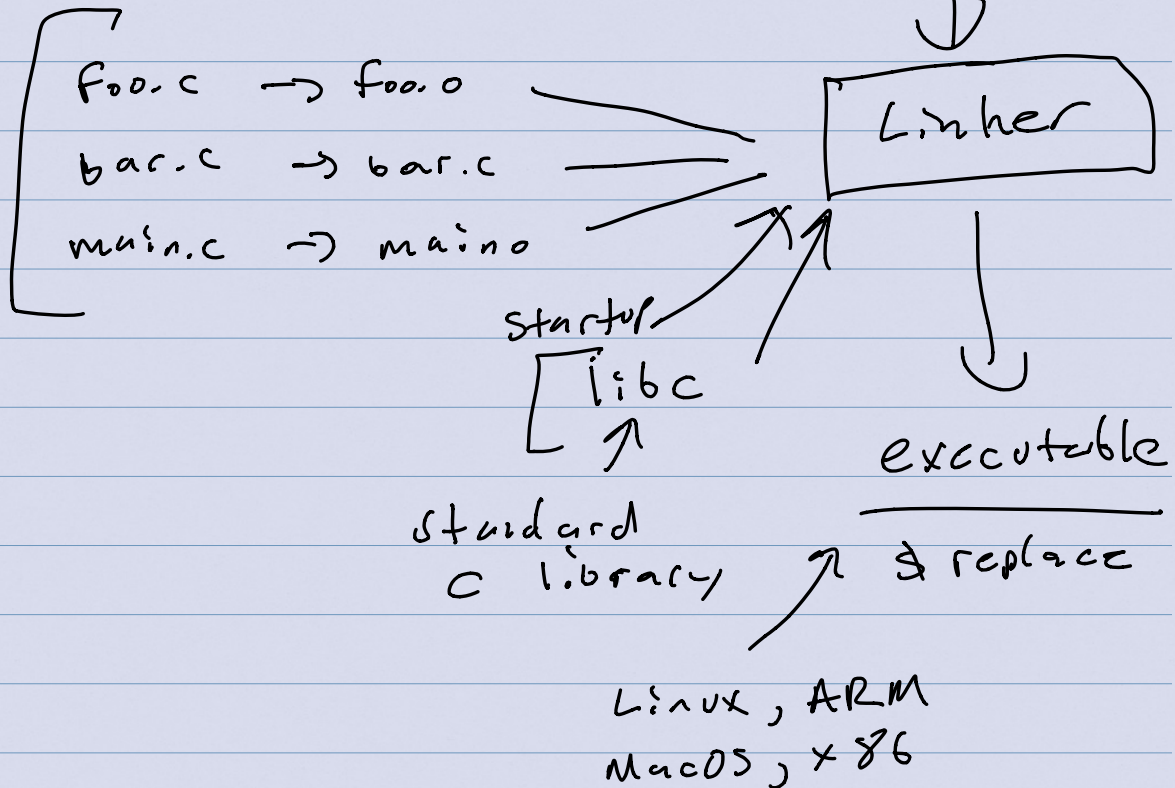 foo.c → foo.o
Linker
bar.c → bar.c
main.c → maino
startup
libc
executable
standard
c library
$ replace
Linux, ARM
MacOS, x86